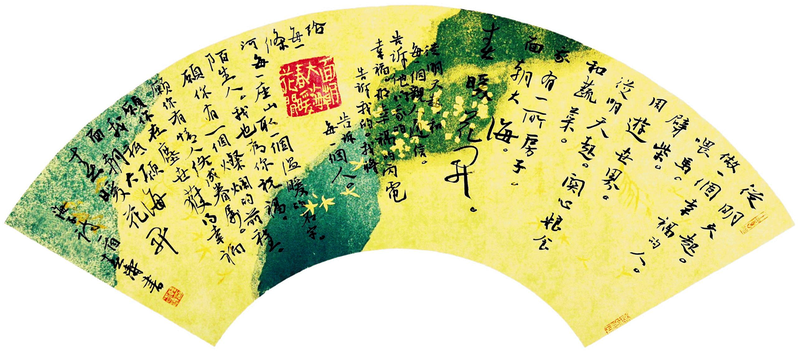 從明天起。
做一個幸福的人。
喂馬。
劈柴。
周遊世界。
從明天起。關心粮食
和蔬菜。
我有一所房子。
面朝大海。
春暖花開。
從明天起和
每個親人通信。
告訴他們我的
幸福那幸福的閃電
告訴我的我將
告訴
每一個人。
給每一條
河每一座山取一個温暖的名字。
陌生人我也為你祝福。
願你有一個燦爛的前程。
願你有情人終成眷屬。
願你在塵世獲得幸福
我只願
面朝大海
春暖花開
面朝大海春暖花開